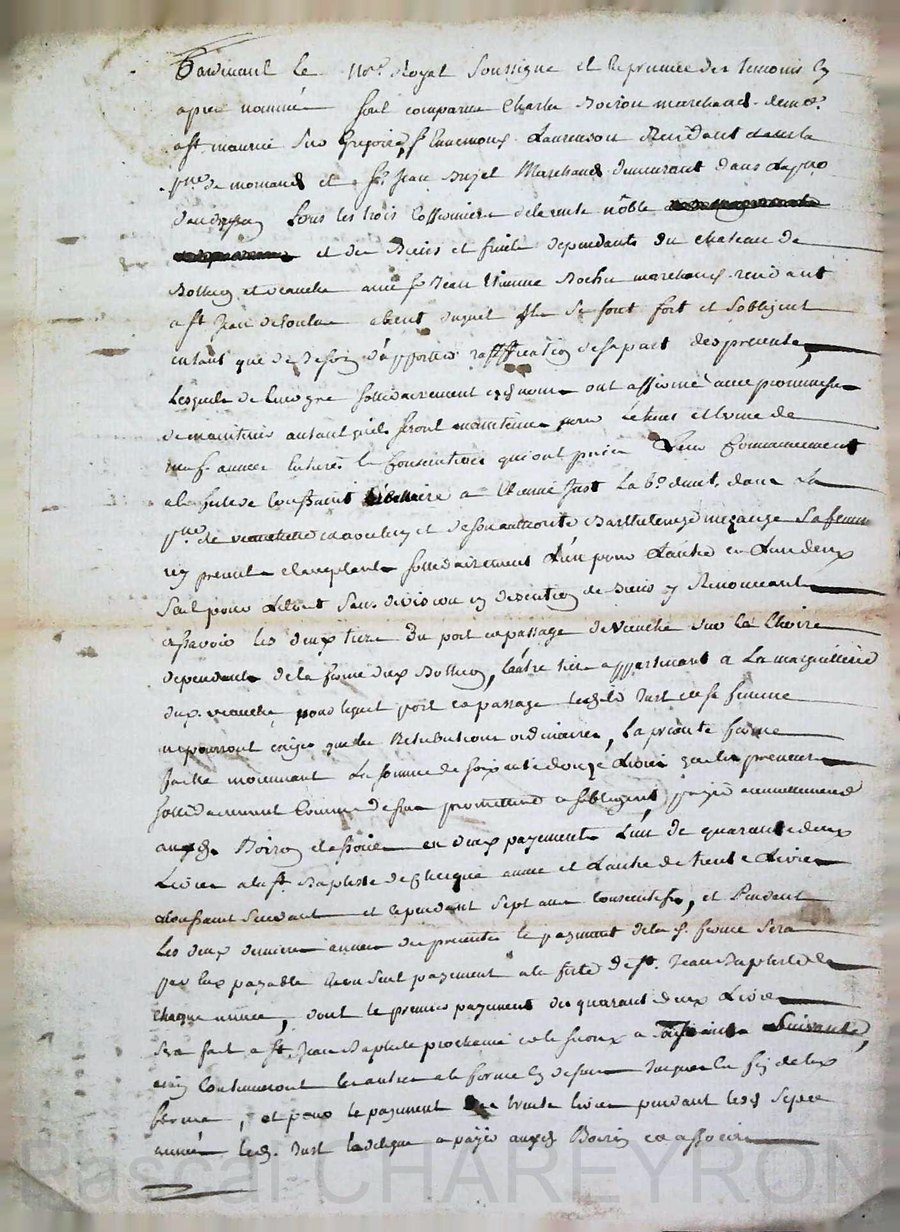 Pardevant le No.re Royal Soussigne et En presence des temoins En
apres nommés sont comparus Charles Boiron marchand dem.t
a st maurice Sur Gregoire, s.r Ennemond Laurenson Residant dans la
p.sse de mornand et s.r Jean Bujet Marchand demeurant dans la p.sse
tous les trois cofermiers de la rente noble
et des Biens et fruits dependants du chateau de
Botheon et veauche avec s.r Jean Etienne Rochu marchand residant
a st Jean absent duquel Ils se font fort et s'obligent
entant que de Besoin d'apporter raffication de sa part des presentes
Lesquels de Leur gre sollidairement ont affermé avec promesse
de maintenir autant quils seront maintenus pour Le tems et terme de
neuf années entieres Et Consecutives qui ont pris Leur Commancement
a la fete de toussaint derniere a Just La dans La
p.sse de veauche et de son authorité Barthelemye mezange Sa femme
icy presents et acceptants sollidairement L'un pour L'autre Lun d'eux
Seul pour Letout Sans division ny discution de Biens y Renonceant
assavoir Les deux tiers Du port et passage de veauche sur La Loire
dependants de la ferme dud Botheon, L'autre tiers appartenant a La marguillerie
dud. veauche, pour lequel port et passage lesd. Just et sa femme
ne pourront exiger que les Retributions ordinaires, La presente ferme
faitte moienant La somme de soixante douze Livres que les preneurs
sollidairement Comme dessus promettent et s'obligent payer annuellement
auxd. Boiron et associés en deux payements L'un de quarante deux
Livres a la st Baptiste de chacque année et L'autre de trente Livres
a toussaint Suivant et ce pendant Sept ans Consecutifs, et Pendant
Les deux dernieres années des presentes le payement de la d. ferme Sera
par Eux payable En un Seul payement a la fete de st. Jean Baptiste de
chaque année, dont le premier payement des quarante deux Livres
Sera fait a st. Jean Baptiste prochaine et le Second a Suivante,
ainsi Continueront les autres a la forme Cy dessus Jusques la fin de lad
ferme, et pour le payement de trente livres pendant lesd Sept
années Led. Just La delegue a payer auxd. Boiron et associés
Pascal CHAREYRON